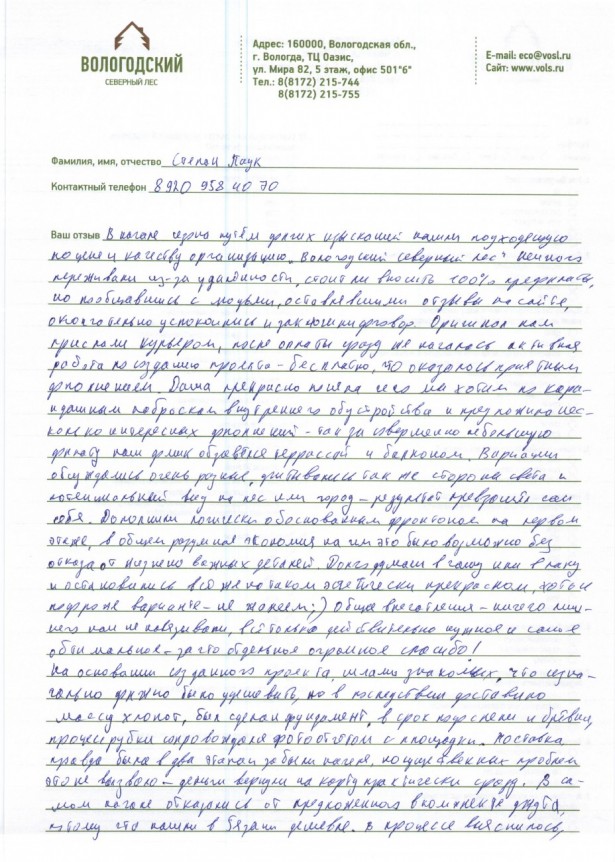 ВОЛОГОДСКИЙ
СЕВЕРНЫЙ ЛЕС
Адрес: 160000, Вологодская обл.,
г. Вологда, ТЦ Оазис,
ул. Мира 82, 5 этаж, офис 501"б"
Тел.: 8(8172) 215-744
8(8172) 215-755
E-mail: eco@vosl.ru
Сайт: www.vols.ru
Фамилия, имя, отчество Степан Паук
Контактный телефон 8920 958 40 70
Ваш отзыв В начале сезона путём долгих изысканий нашли подходящую
по цене и качеству организацию „Вологодский северный лес" Немного
переживали из-за удалённости, стоит ли вносить 100% предоплаты,
но пообщавшись с людьми, оставлявшими отзывы на сайте,
окончательно успокоились и заключили договор. Оригинал нам
прислали курьером, после оплаты сразу же началась активная
работа по созданию проекта - бесплатно, что оказалось приятным
дополнением. Дама прекрасно поняла чего мы хотим по кара-
ндашным наброскам внутреннего обустройства и предложила нес-
колько интересных дополнений - так за совершенно небольшую
доплату нам домик обзавёлся террасой и балконом. Варианты
обсуждались очень разные, учитывались так же стороны света и
потенциальный вид на лес или город - результат превзошёл сам
себя. Дополнили логически обоснованным фронтоном на первом
этаже, в общем разумная экономия на чём это было возможно без
отказа от жизненно важных деталей. Долго думали в чашу или в лапу
и остановились всё же на таком эстетически прекрасном, хоть и
подороже варианте - не жалеем :) Общие впечатления - ничего лиш-
него нам не навязывали, всё только действительно нужное и самое
оптимальное - за что отдельное огромное спасибо!
На основании созданного проекта, силами знакомых, что изна-
чально должно было удешевить, но впоследствии доставило
массу хлопот, был сделан фундамент, в срок подоспели и брёвна,
процесс рубки сопровождался фотоотчётом с площадки. Поставка
правда была в два этапа забыли нагеля, но существенных проблем
это не вызвало - деньги вернули на карту практически сразу. В са-
мом начале отказались от предложенного в комплекте джута,
потому что нашли в Рязани дешевле. В процессе выяснилось,